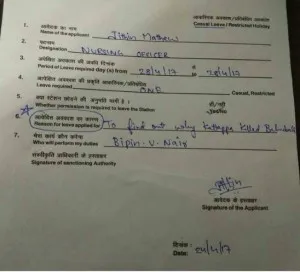 आकस्मिक अवकाश/प्रतिबंधित अवकाश
Casual Leave / Restricted Holiday
1. आवेदक का नाम
Name of the applicant Jibin Mathew
2. पदनाम
Designation NURSING OFFICER
3. अपेक्षित अवकाश की अवधि दिनांक
Period of Leave required day (s) from 28/4/17 to 28/4/17
4. अपेक्षित अवकाश की प्रकृति आकस्मिक/प्रतिबंधित
ONE Casual, Restricted
5. क्या स्टेशन छोड़ने की अनुमति चाहते हैं। हाँ/नहीं
Whether permission is required to leave the Station
6. अपेक्षित अवकाश का कारण
Reason for leave applied for To find out why Kattappa Killed Bahubali
7. मेरा कार्य कौन करेगा
Who will perform my duties Bipin. V. Nair
संस्वीकृति प्राधिकारी के हस्ताक्षर
Signature of sanctioning Authority
आवेदक के हस्ताक्षर
Signature of the Applicant
दिनांक :
Date: 24/4/17